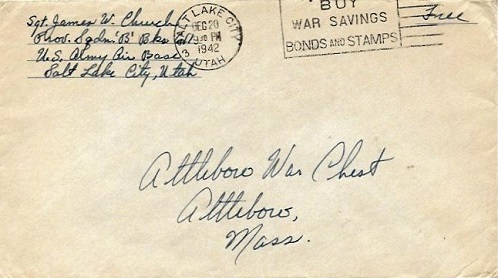 Sgt. James W. Church
Prov. Sqdn. 'B' Bks
U.S. Army Air Base
Salt Lake City, Utah
SALT LAKE CITY
DEC 20
PM
1942
3 UTAH
BUY
WAR SAVINGS
BONDS AND STAMPS
Free
Attleboro War Chest
Attleboro,
Mass.